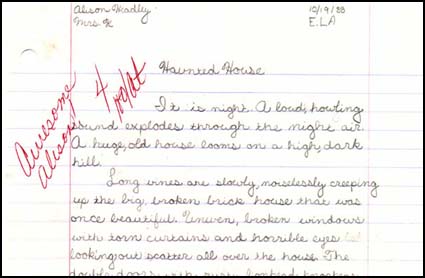 Alison
10/19/88
Mrs. K
E.L.A
Awesome
Alison!
4
Haunted House
It is night. A loud, howling
sound explodes through the night air.
A huge, old house looms on a high, dark
hill.
Long vines are slowly, noiselessly creeping
up the big, broken brick house that was
once beautiful. Uneven, broken windows
with torn curtains and horrible eyes
looking out scatter all over the house. The
double doors with